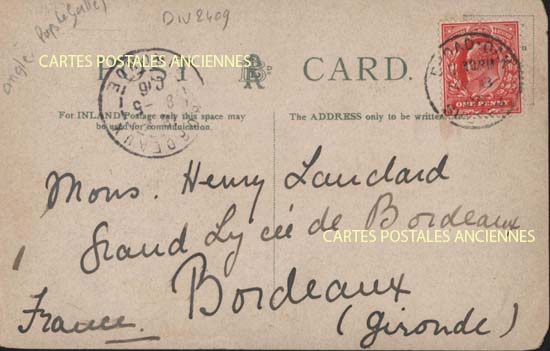 DIV2409
angle
CARTES POSTALES ANCIENNES
CARD.
ONE PENNY
BORDEAUX
For INLAND Postage only this space may be used for communication.
The ADDRESS only to be written
Mons. Henry Landard
Grand Lycée de Bordeaux
CARTES POSTALES ANCIENNES
Bordeaux
France
(Gironde)